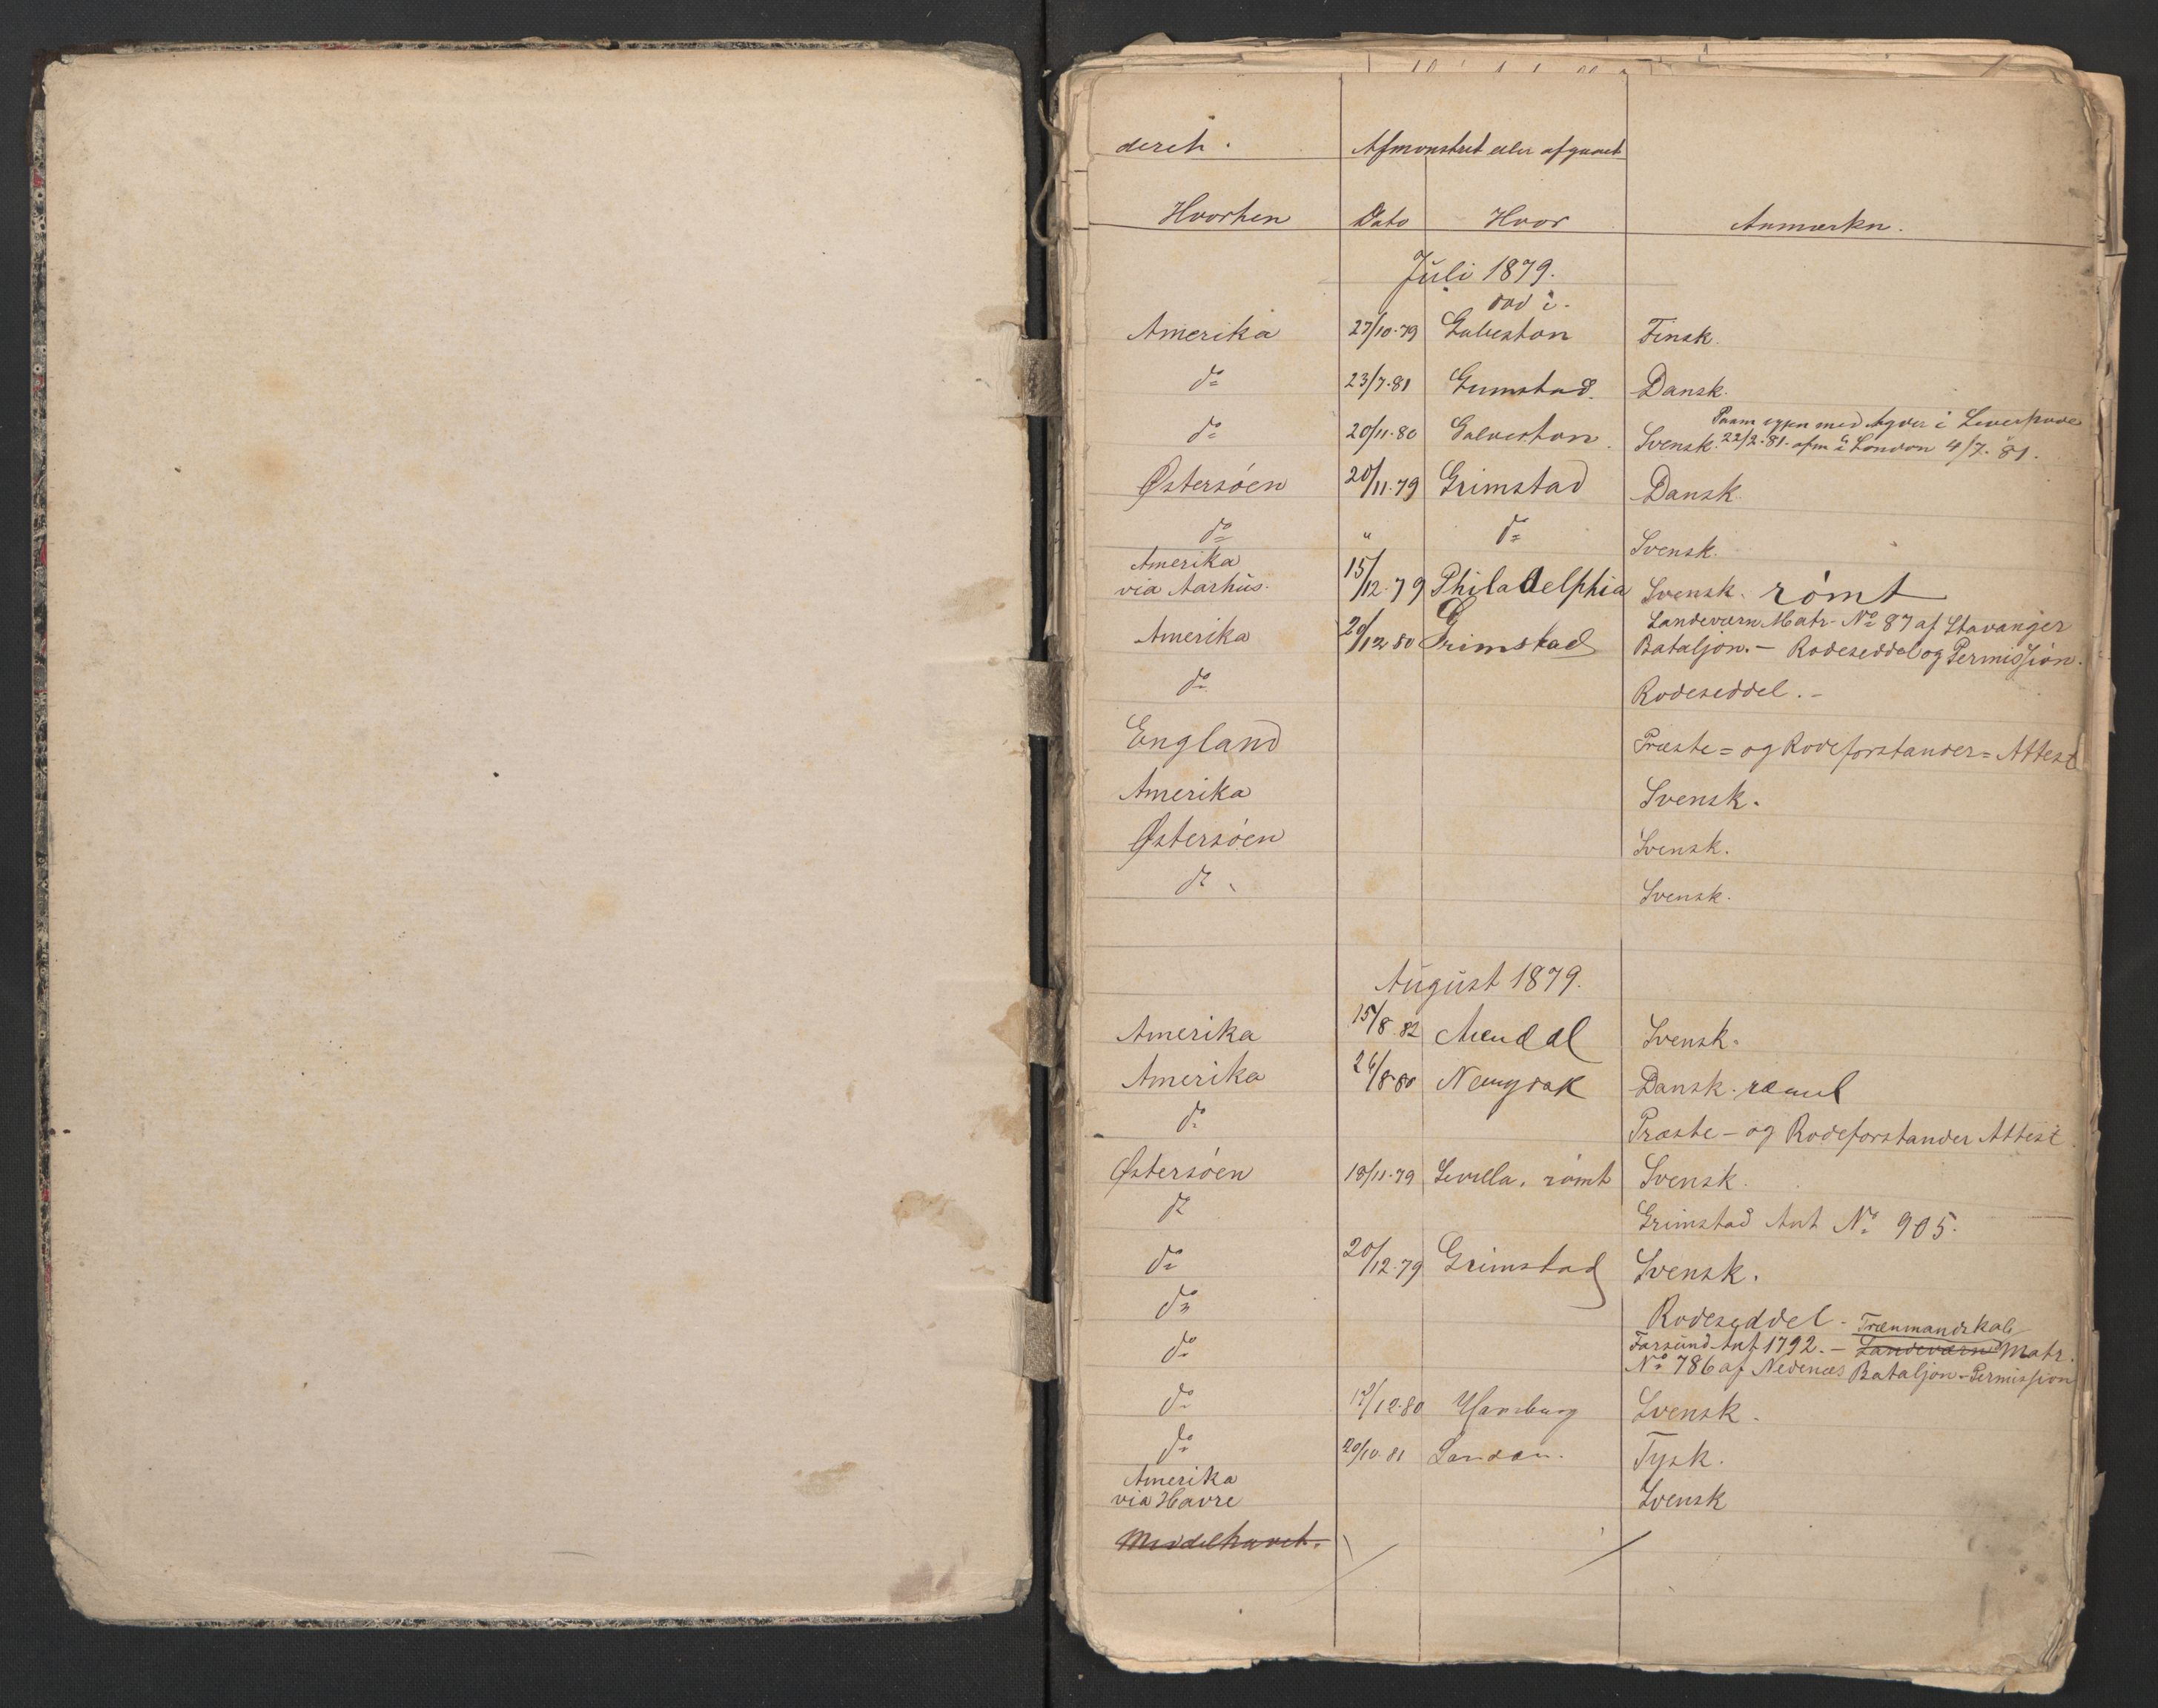 derch. Afmønstret eller afgaaet
Hvorhen Dato Hvor Anmærkn.
Juli 1879.
død i.
Amerika 27/10-79 Galveston Finsk.
do 23/7-81 Grimstad. Dansk.
Paam igjen med Agder i Liverpool
do 20/11-80 Galveston. Svensk. 22/2-81. afm i London 4/7-81.
Østersöen 20/11-79 Grimstad Dansk.
do " do Svensk.
Amerika
via Aarhus. 15/12-79 Philadelphia Svensk. römt
Landeværn Matr-No 87 af Stavanger
Amerika 20/12 80 Grimstad Bataljon.- Rodeseddel og Permission.
do Rodeseddel.-
England Præste= og Rodeforstander= Attest
Amerika Svensk.
Østersöen Svensk.
do Svensk.
August 1879.
Amerika 15/8 82 Arendal Svensk.
Amerika 26/8-80 Newyork Dansk. rømt
do Præste- og Rodeforstander Attest
Østersöen 18/11-79 Sevilla. römt Svensk.
do Grimstad Ant No 905.
do 20/12-79 Grimstad Svensk.
do Rodeseddel - Trænmandskab
do Farsund Ant 1792.- Landeværn Matr.
No 786 af Nedenæs Bataljon-Permission
do 17/12-80 Hamburg Svensk.
do 20/10-81 London. Tysk.
Amerika
via Havre Svensk
Middelhavet.